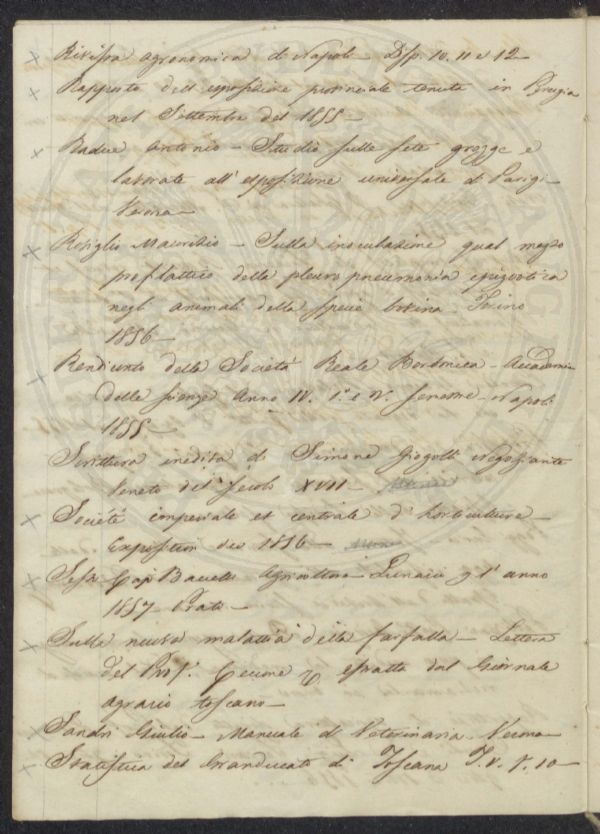 Rivista agronomica di Napoli - Disp. 10. 11 e 12 -
Rapporto dell'esposizione provinciale tenuta in Brescia
nel Settembre del 1855 -
Radice Antonio - Studio sulle sete grezze e
lavorate all'esposizione universale di Parigi -
Verona -
Resiglio Maurizio - Sulla inoculazione qual mezzo
profilattico della pleuro pneumonia epizootica
negli animali della specie bovina - Torino
1856 -
Rendiconto della Società Reale Borbonica - Accademia
delle scienze Anno IV. 1°. e 2°. semestre - Napoli
1855 -
Scrittura inedita di Simone negoziante
Veneto del Secolo XVII -
Société imperiale et centrale d'horticulture -
Exposition de 1856 -
Agricoltore - Lunario p l'anno
1857 Prato -
Sulla nuova malattia della farfalla - Lettera
del Prof. estratto dal Giornale
agrario toscano -
Sandri Giulio - Manuale di Veterinaria - Verona -
Statistica del Granducato di Toscana T. V. 10 -